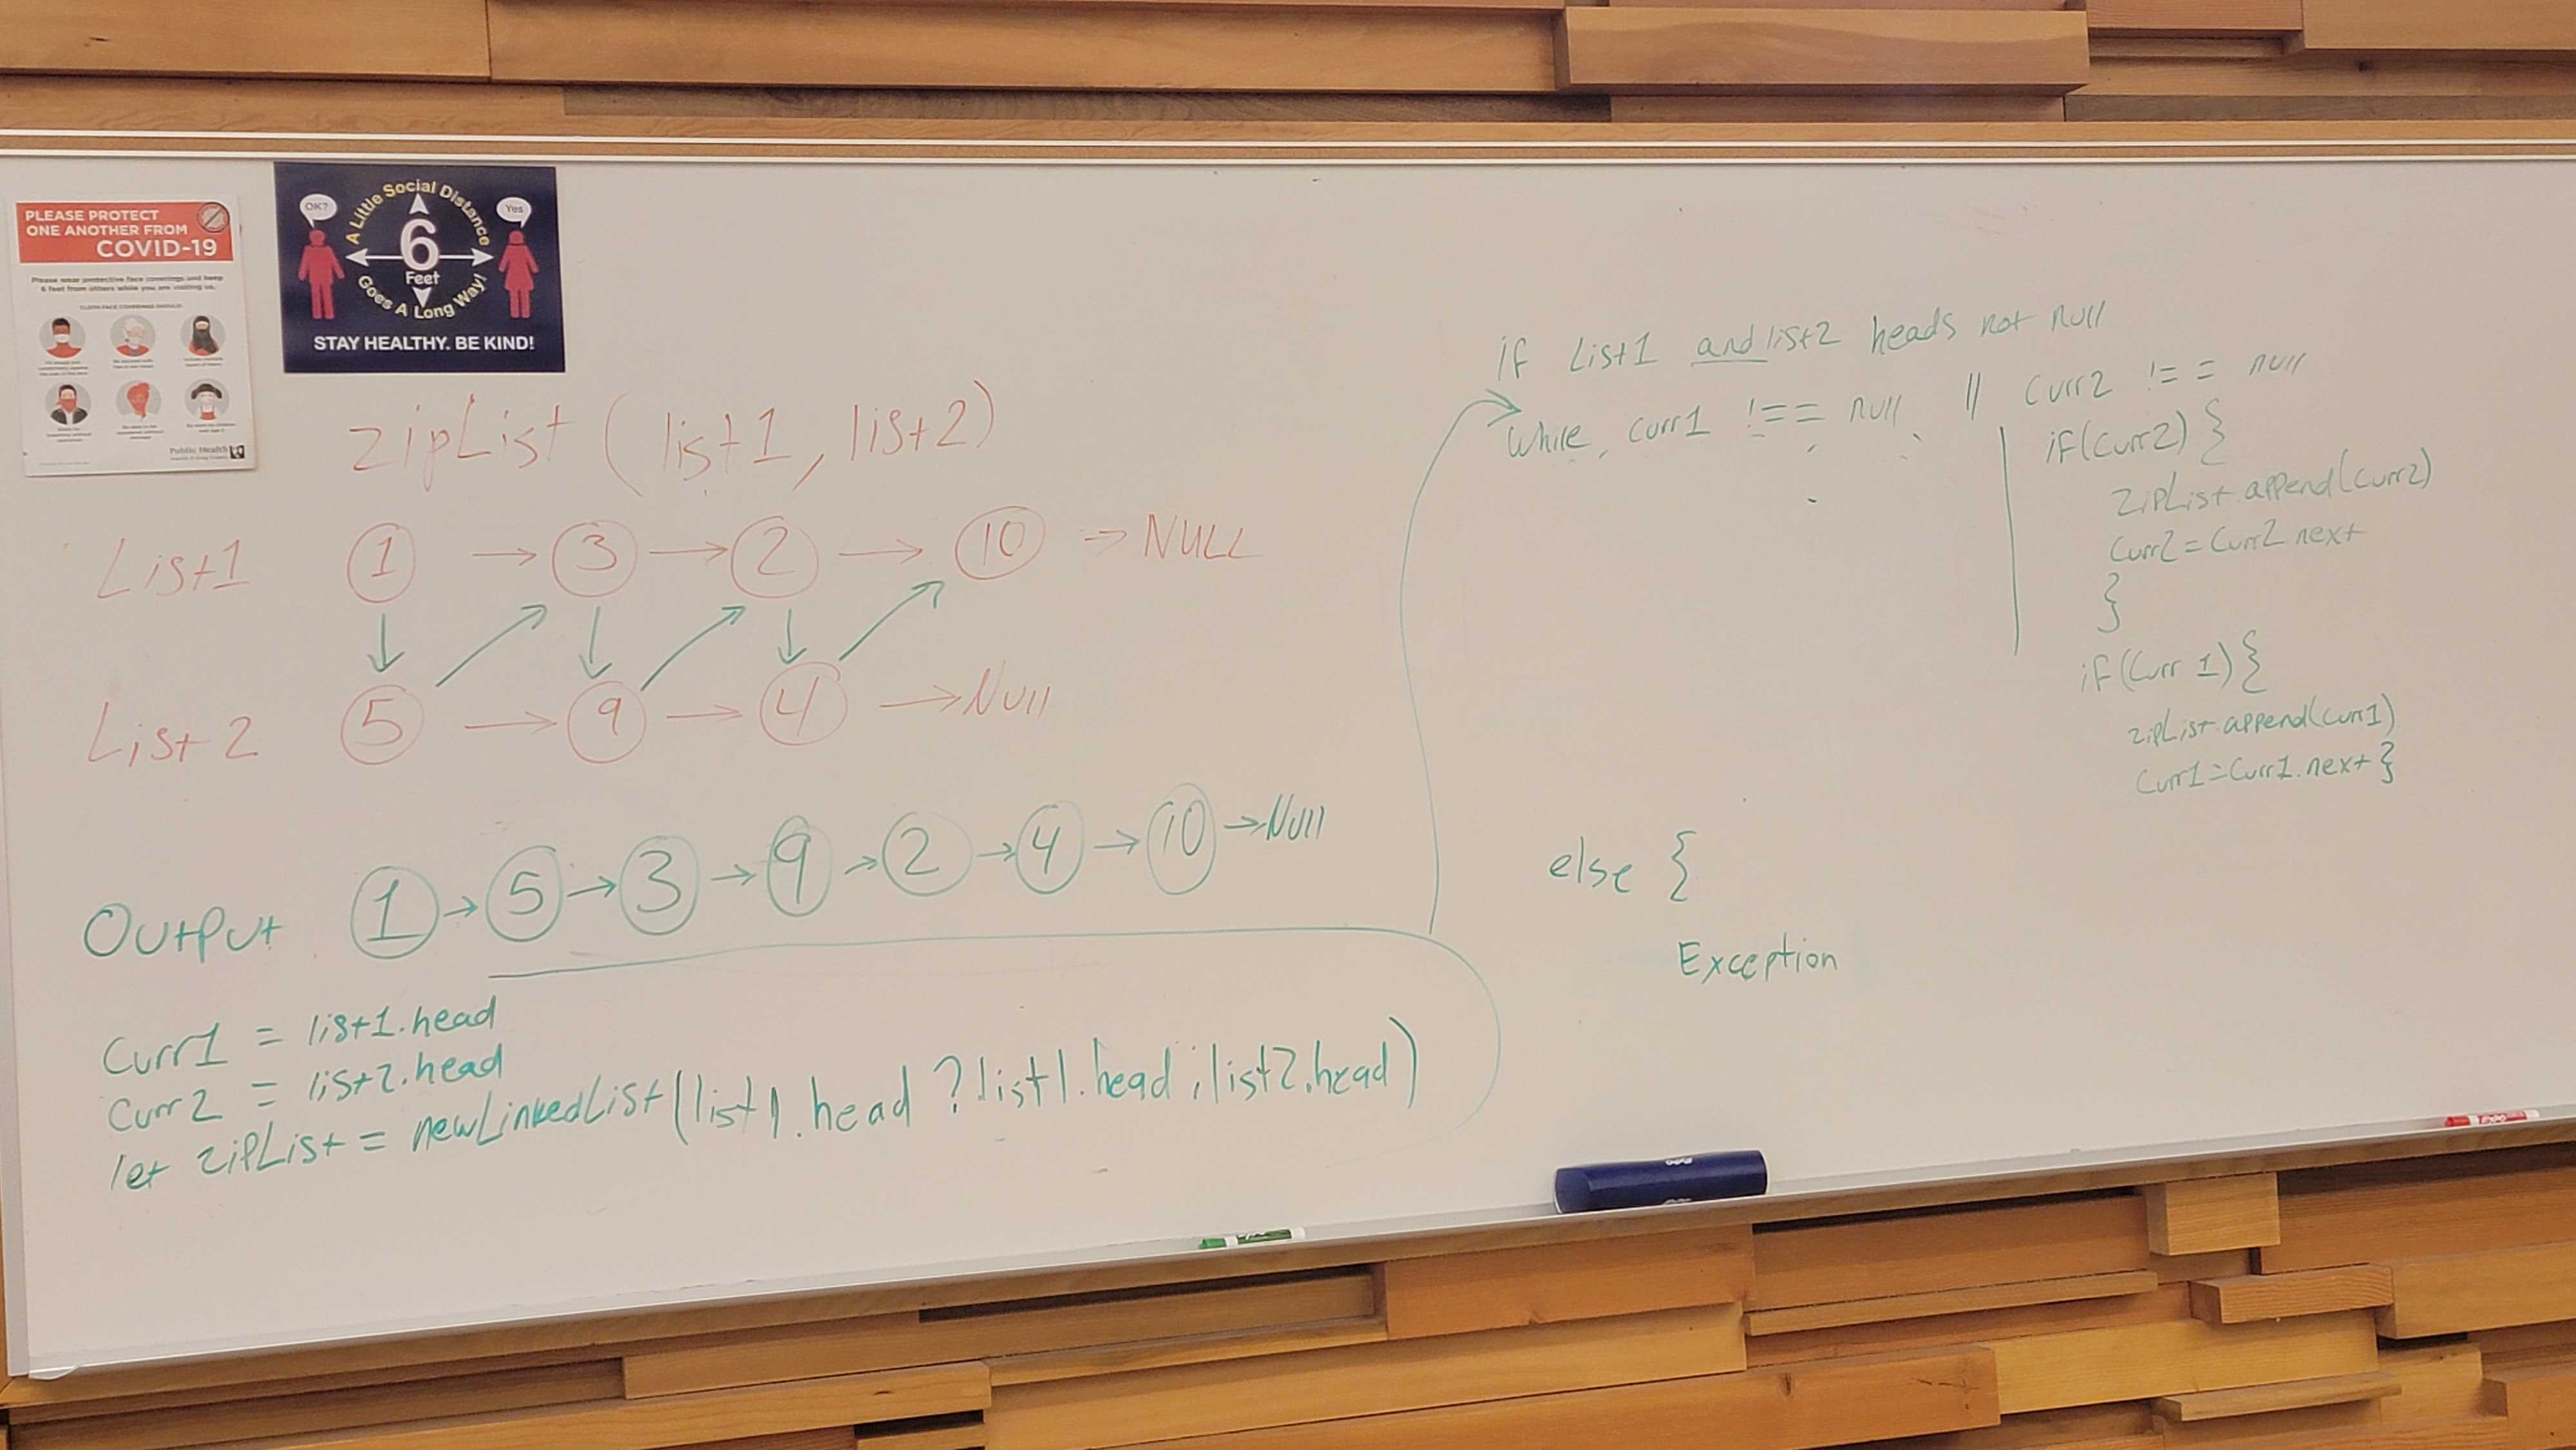 PLEASE PROTECT
ONE ANOTHER FROM
COVID-19
Please wear protective face coverings and keep
6 feet from others while you are visiting us.
CLOTH FACE COVERINGS SHOULD:
Public Health
OK?
Yes
A Little Social Distance
6
Feet
Goes A Long Way!
STAY HEALTHY. BE KIND!
zipList (list1, list2)
List1 1 → 3 → 2 → 10 → NULL
List2 5 → 9 → 4 → Null
Output 1 → 5 → 3 → 9 → 2 → 4 → 10 → Null
Curr1 = list1.head
Curr2 = list2.head
let zipList = newLinkedList(list1.head ? list1.head ; list2.head)
if List1 and list2 heads not null
while, curr1 !== null || curr2 !== null
if(curr2) {
zipList.append(curr2)
Curr2 = Curr2.next
}
if(Curr 1) {
zipList.append(curr1)
Curr1 = Curr1.next }
else {
Exception
EXPO